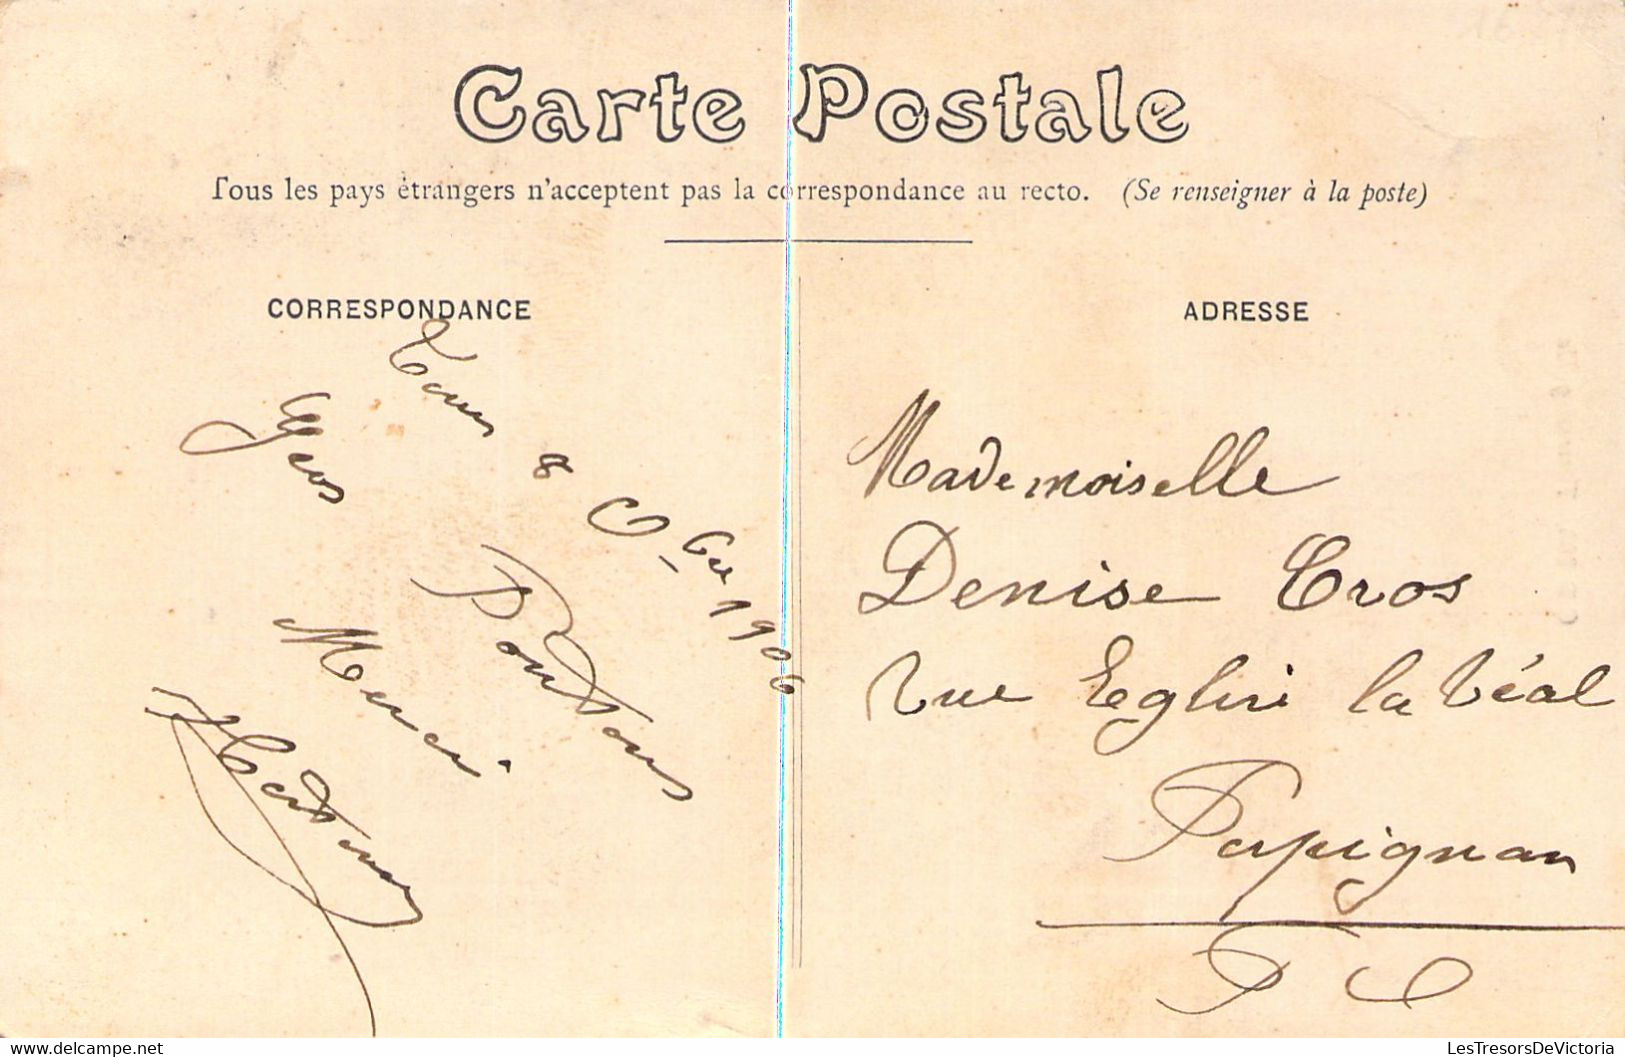 Carte Postale
Tous les pays étrangers n'acceptent pas la correspondance au recto. (Se renseigner à la poste)
CORRESPONDANCE
Tours 8 Obre 1906
Gros Poutous
Merci
ADRESSE
Mademoiselle
Denise Cros
rue Eglise la Réal
Perpignan
P O
LesTresorsDeVictoria
delcampe.net